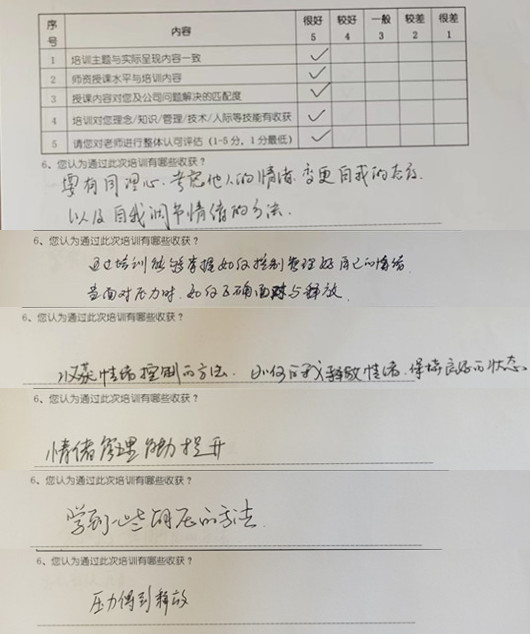 序号 内容 很好5 较好4 一般3 较差2 很差1
1 培训主题与实际呈现内容一致 ✓
2 师资授课水平与培训内容 ✓
3 授课内容对您及公司问题解决的匹配度 ✓
4 培训对您理念/知识/管理/技术/人际等技能有收获 ✓
5 请您对老师进行整体认可评估（1-5分，1分最低） ✓
6、您认为通过此次培训有哪些收获？
要有同理心、考虑他人的情绪、变更自我的态度、
以及自我调节情绪的方法.
6、您认为通过此次培训有哪些收获？
通过培训能够掌握如何控制管理好自己的情绪
当面对压力时，如何正确面对与释放
6、您认为通过此次培训有哪些收获？
收获情绪控制的方法、如何自我释放情绪、保持良好的状态。
6、您认为通过此次培训有哪些收获？
情绪管理能力提升
6、您认为通过此次培训有哪些收获？
学到一些的方法.
6、您认为通过此次培训有哪些收获？
压力得到释放